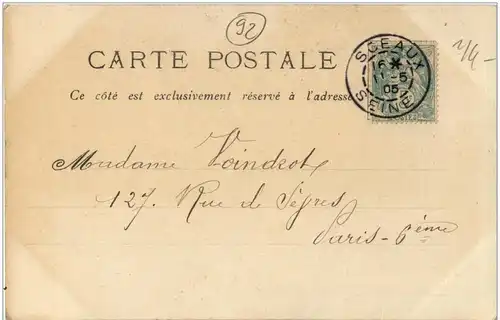 92
2/4-
CARTE POSTALE
SCEAUX
6 *
11-5
05
SEINE
Ce côté est exclusivement réservé à l'adresse
Madame Voindrot
127, Rue de Sèvres
Paris - 6ème